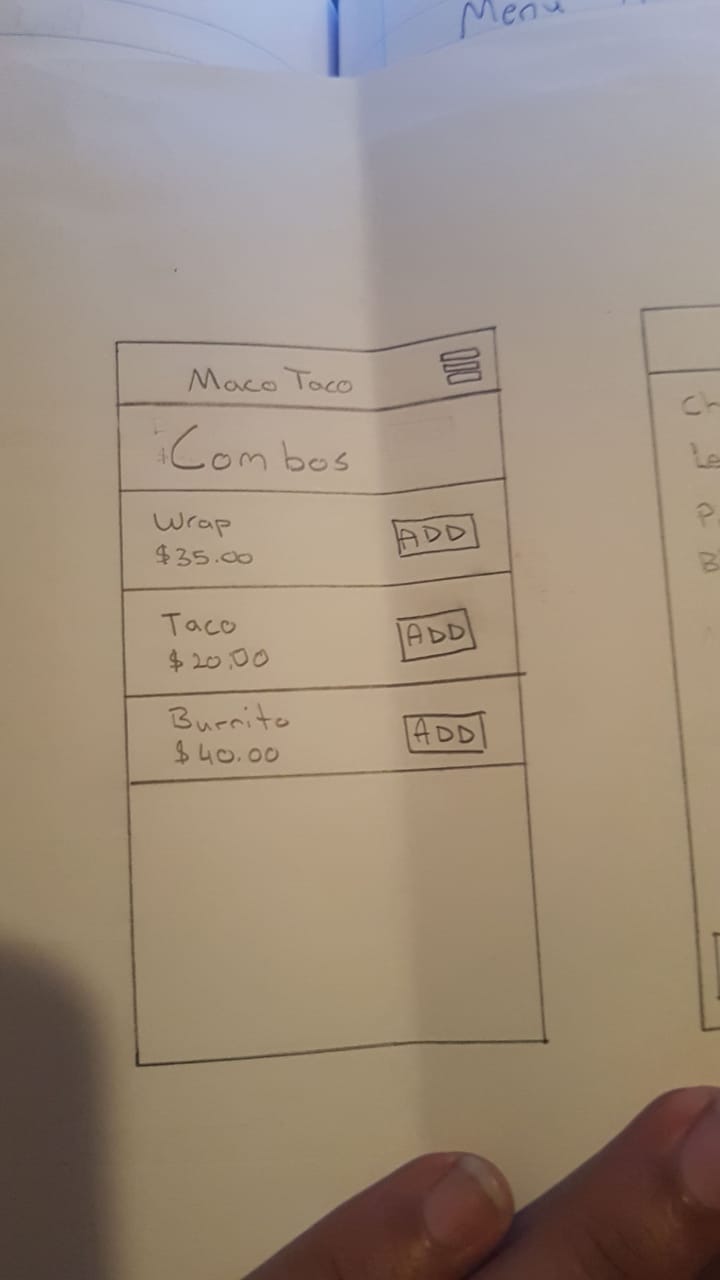 Menu
Maco Taco
Combos
Wrap
$35.00
ADD
Taco
$20.00
ADD
Burrito
$40.00
ADD